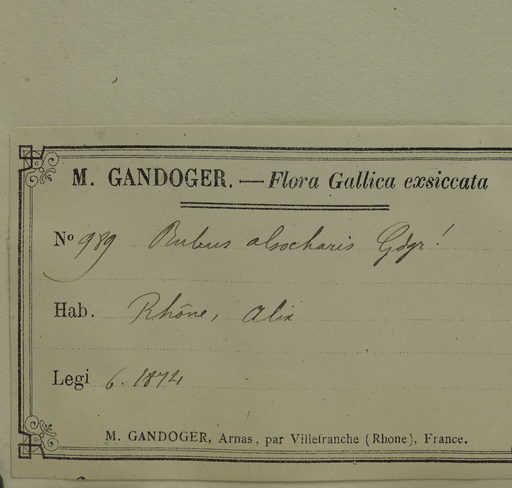 M. GANDOGER. — Flora Gallica exsiccata
No 989 Rubus alsocharis Gdgr!
Hab. Rhône, Alix
Legi 6. 1874
M. GANDOGER, Arnas, par Villefranche (Rhone), France.